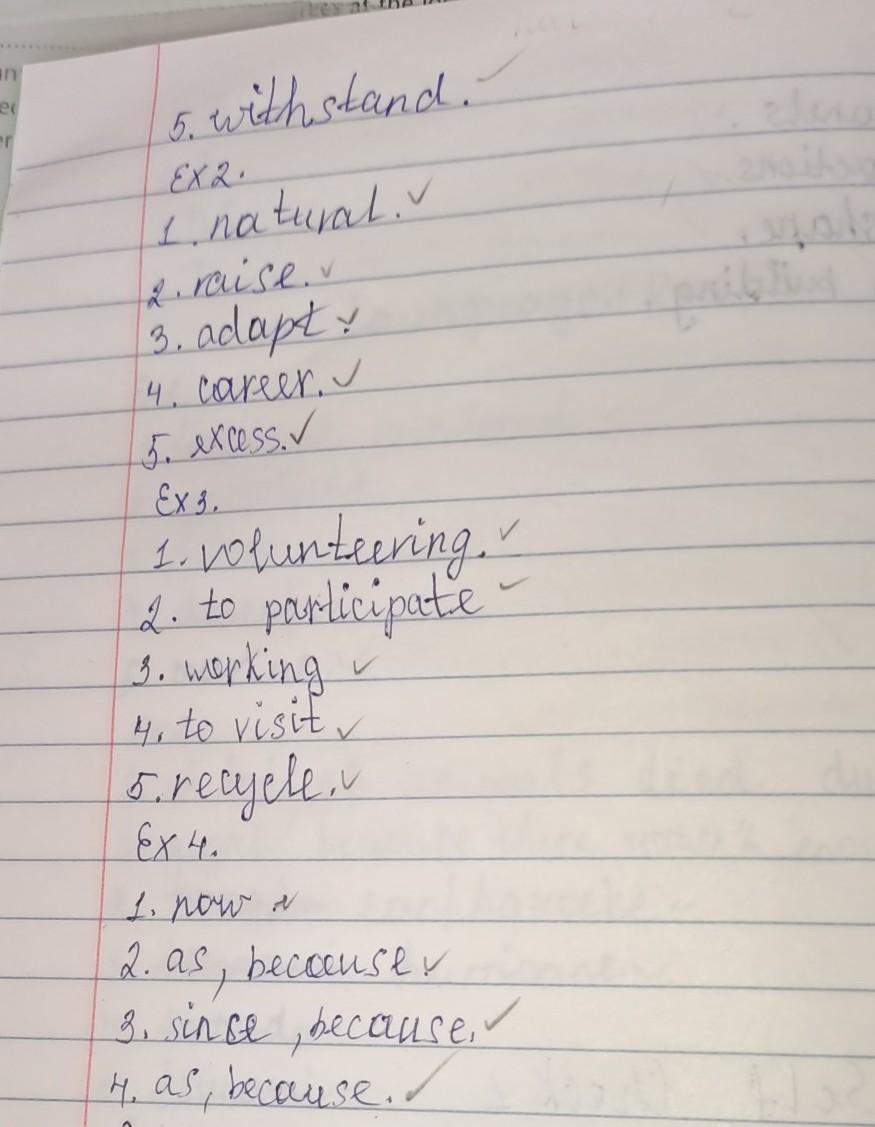 5. withstand.
Ex 2.
1. natural.
2. raise.
3. adapt.
4. career.
5. excess.
Ex 3.
1. volunteering.
2. to participate
3. working
4. to visit
5. recycle.
Ex 4.
1. now
2. as, because
3. since, because.
4. as, because.